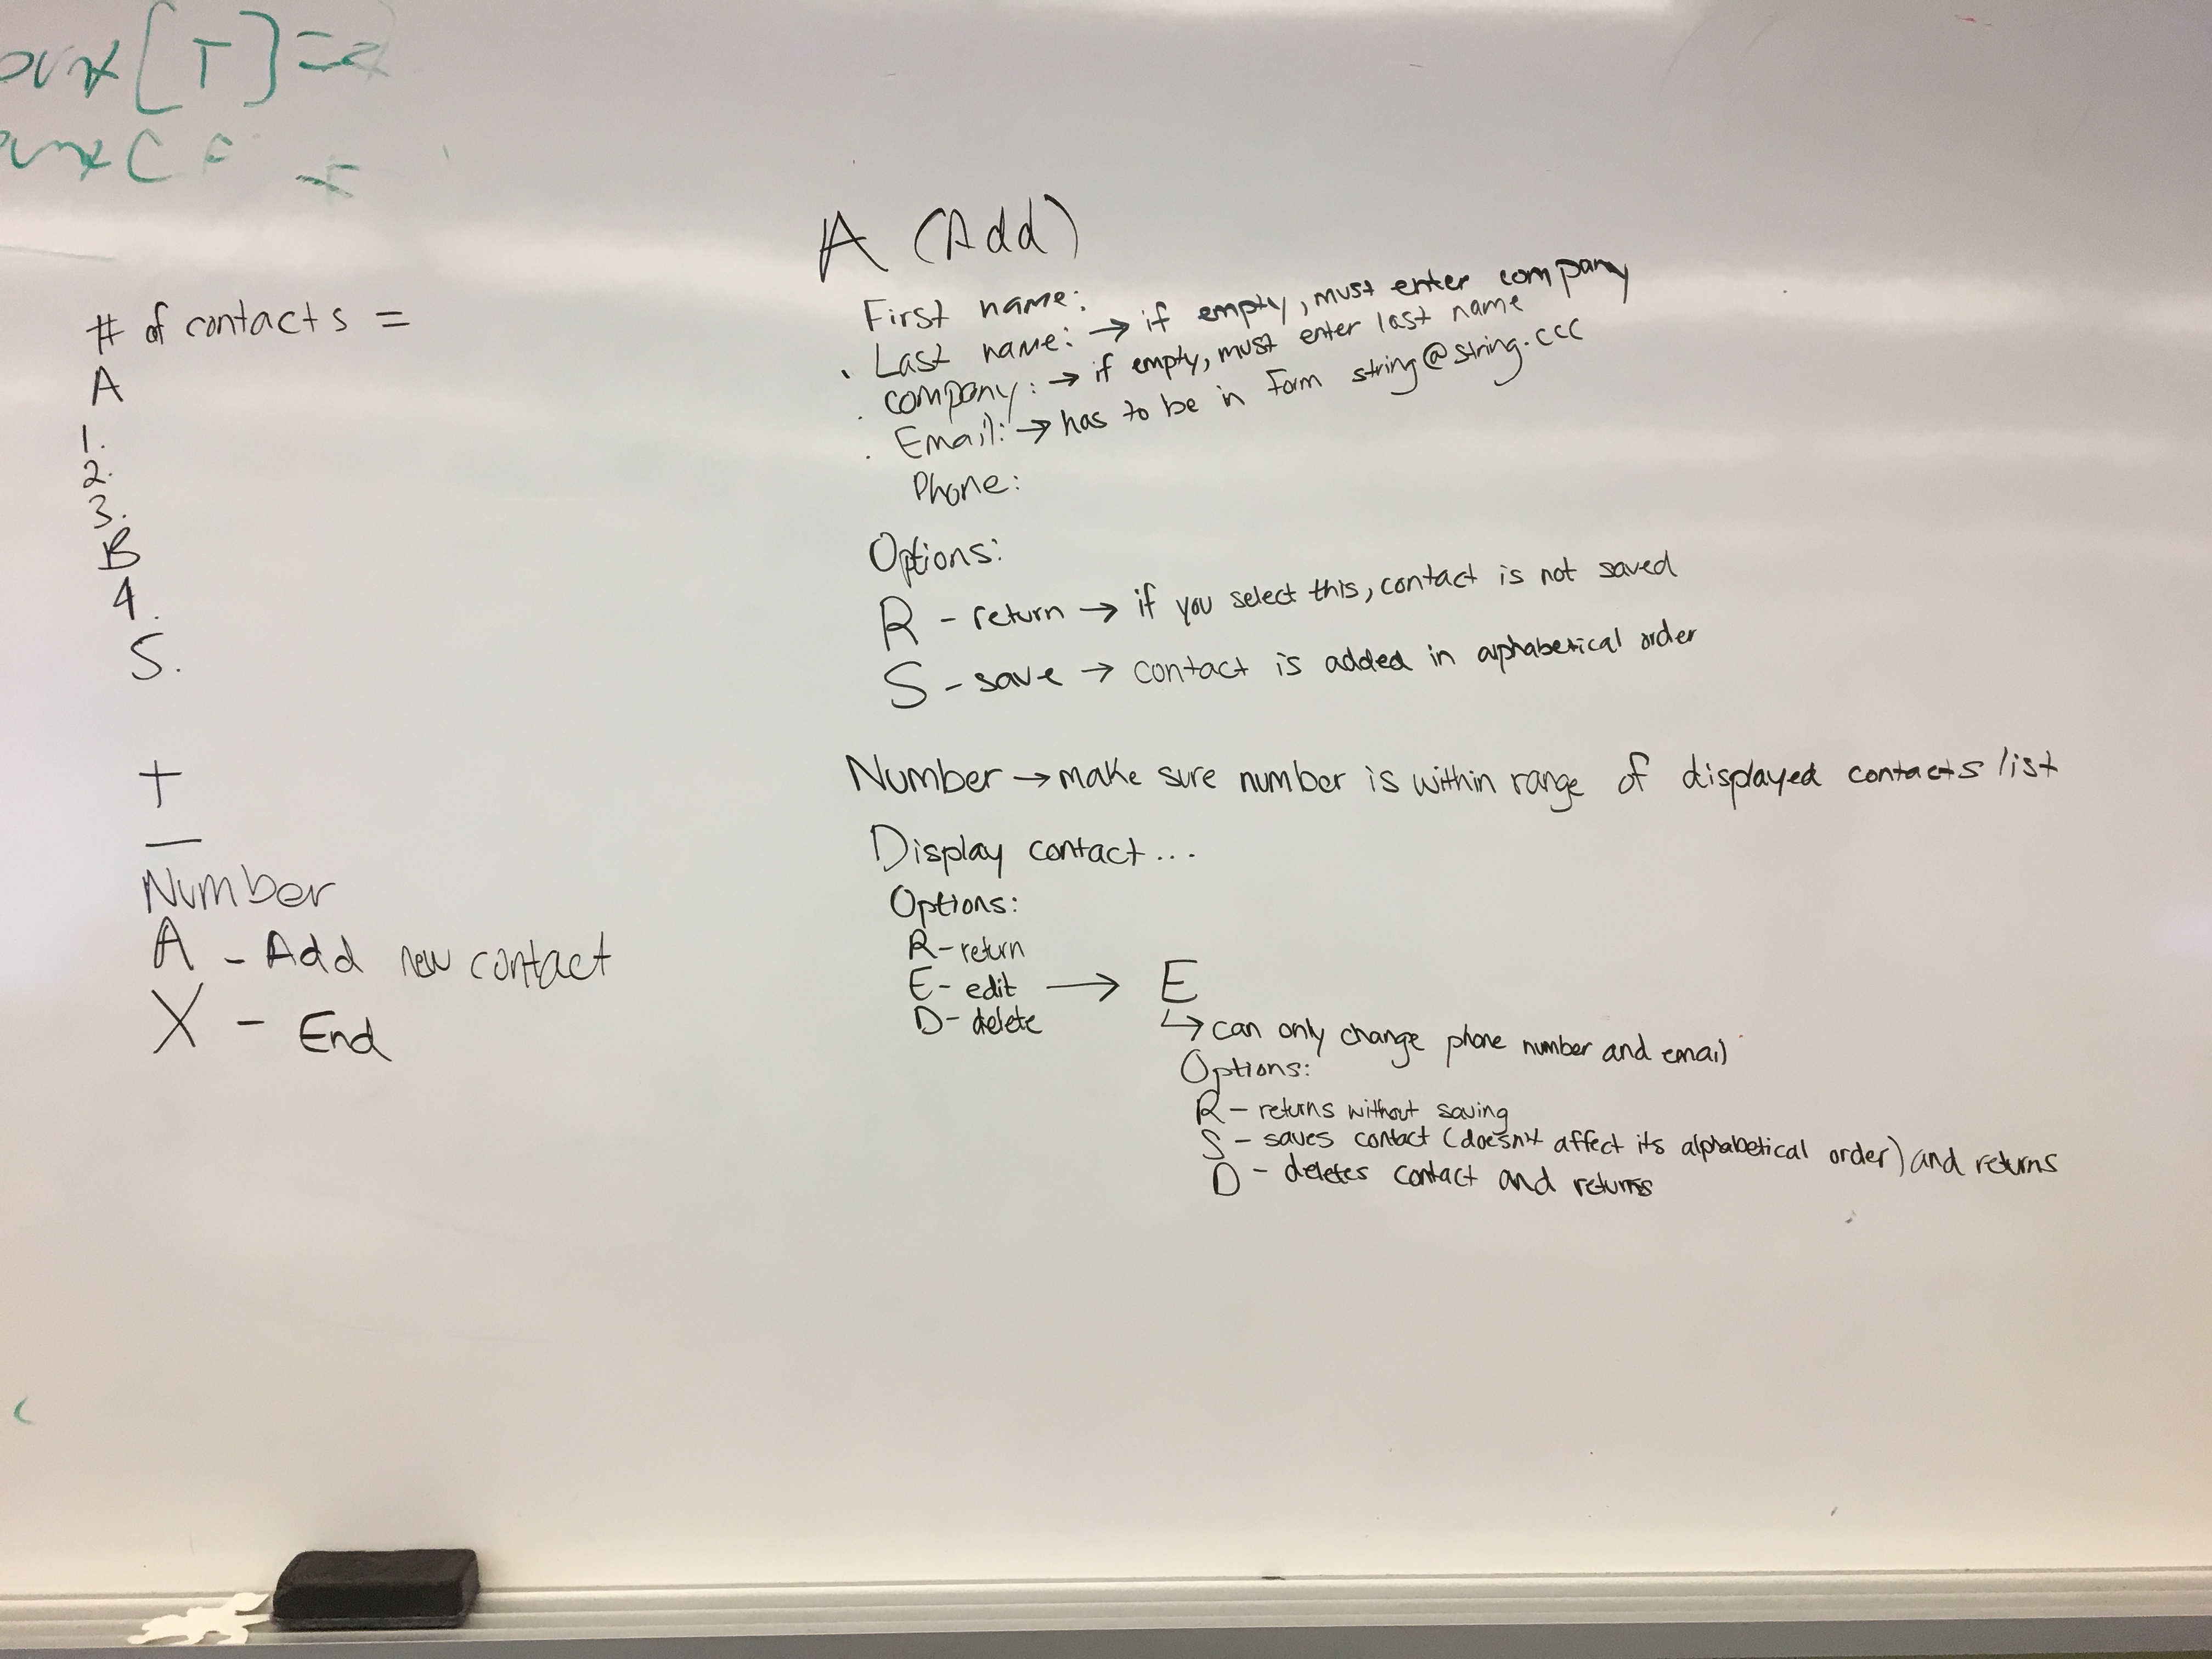 [T]=
# of contacts =
A
1.
2.
3.
B
4.
5.
+
—
Number
A - Add new contact
X - End
A (Add)
First name:
. Last name: → if empty, must enter company
. company: → if empty, must enter last name
. Email: → has to be in form string@string.ccc
Phone:
Options:
R - return → if you select this, contact is not saved
S - save → contact is added in alphabetical order
Number → make sure number is within range of displayed contacts list
Display contact...
Options:
R - return
E - edit → E
D - delete
↳ can only change phone number and email
Options:
R - returns without saving
S - saves contact (doesn't affect its alphabetical order) and returns
D - deletes contact and returns